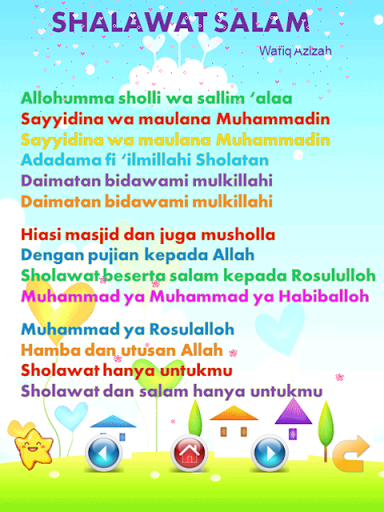 SHALAWAT SALAM
Wafiq Azizah
Allohumma sholli wa sallim ‘alaa
Sayyidina wa maulana Muhammadin
Sayyidina wa maulana Muhammadin
Adadama fi ‘ilmillahi Sholatan
Daimatan bidawami mulkillahi
Daimatan bidawami mulkillahi
Hiasi masjid dan juga musholla
Dengan pujian kepada Allah
Sholawat beserta salam kepada Rosululloh
Muhammad ya Muhammad ya Habiballoh
Muhammad ya Rosulalloh
Hamba dan utusan Allah
Sholawat hanya untukmu
Sholawat dan salam hanya untukmu